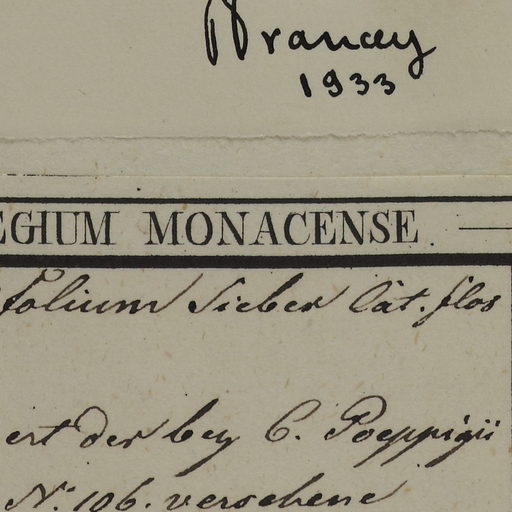 Drancey
1933
EGIUM MONACENSE
folium Sieber Cat. flos
ert der bey C. Poeppigii
N: 106. versehene